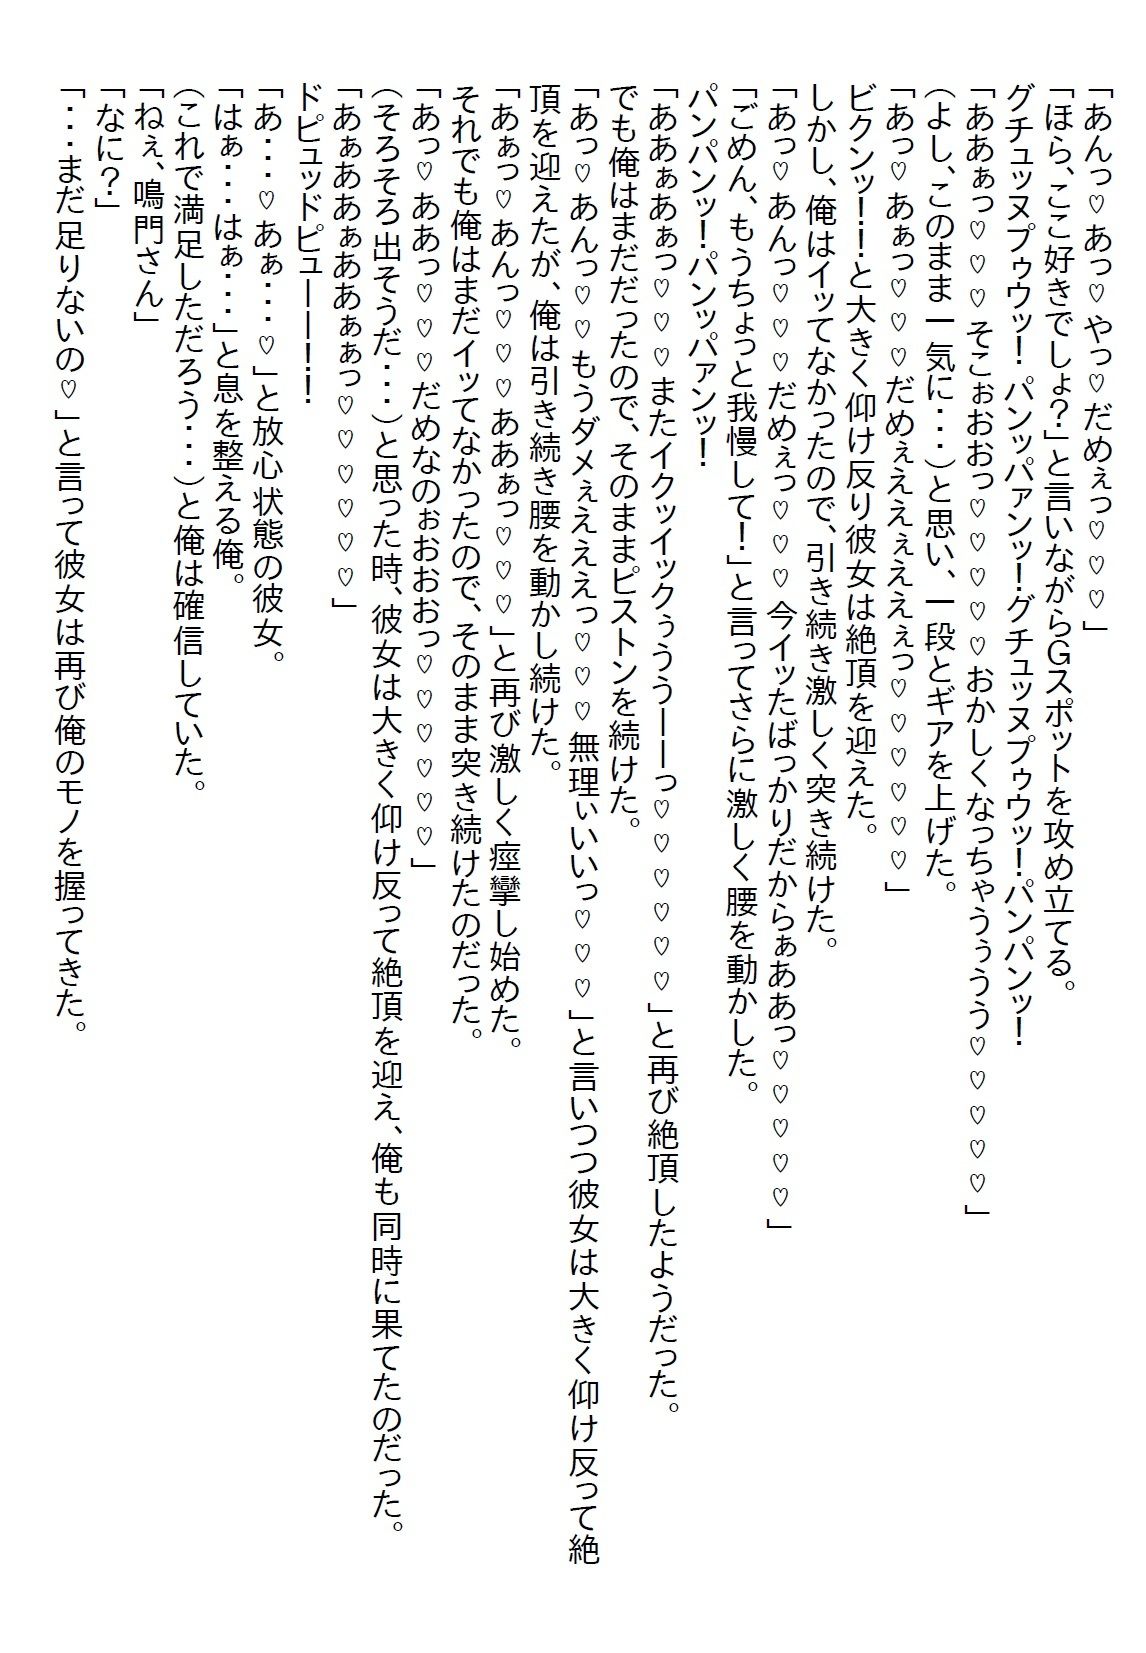 「あんっ♡あっ♡やっ♡だめぇっ♡♡♡」
「ほら、ここ好きでしょ？」と言いながらGスポットを攻め立てる。
グチュッヌプゥウッ！パンッパァンッ！グチュッヌプゥウッ！パンパンッ！
「ああぁっ♡♡♡そこぉおおっ♡♡♡♡♡おかしくなっちゃうぅうう♡♡♡♡♡」
（よし、このまま一気に・・・）と思い、一段とギアを上げた。
「あっ♡あぁっ♡♡♡だめぇええぇええぇっ♡♡♡♡♡♡」
ビクンッ！！と大きく仰け反り彼女は絶頂を迎えた。
しかし、俺はイッてなかったので、引き続き激しく突き続けた。
「あっ♡あんっ♡♡♡だめぇっ♡♡♡今イッたばっかりだからぁああっ♡♡♡♡♡」
「ごめん、もうちょっと我慢して！」と言ってさらに激しく腰を動かした。
パンパンッ！パンッパァンッ！
「ああぁあぁっ♡♡♡またイクッイックぅうう——っ♡♡♡♡♡♡」と再び絶頂したようだった。
でも俺はまだだったので、そのままピストンを続けた。
「あっ♡あんっ♡♡もうダメぇえええっ♡♡♡無理ぃいいっ♡♡♡」と言いつつ彼女は大きく仰け反って絶
頂を迎えたが、俺は引き続き腰を動かし続けた。
「あぁっ♡あんっ♡♡♡ああぁっ♡♡♡」と再び激しく痙攣し始めた。
それでも俺はまだイッてなかったので、そのまま突き続けたのだった。
「あっ♡ああっ♡♡♡だめなのぉおおおっ♡♡♡♡♡♡」
（そろそろ出そうだ・・・）と思った時、彼女は大きく仰け反って絶頂を迎え、俺も同時に果てたのだった。
「あぁああぁああぁぁっ♡♡♡♡♡♡」
ドピュッドピュ——！！
「あ・・・♡あぁ・・・♡」と放心状態の彼女。
「はぁ・・・はぁ・・・」と息を整える俺。
（これで満足しただろう・・・）と俺は確信していた。
「ねぇ、鳴門さん」
「なに？」
「・・・まだ足りないの♡」と言って彼女は再び俺のモノを握ってきた。